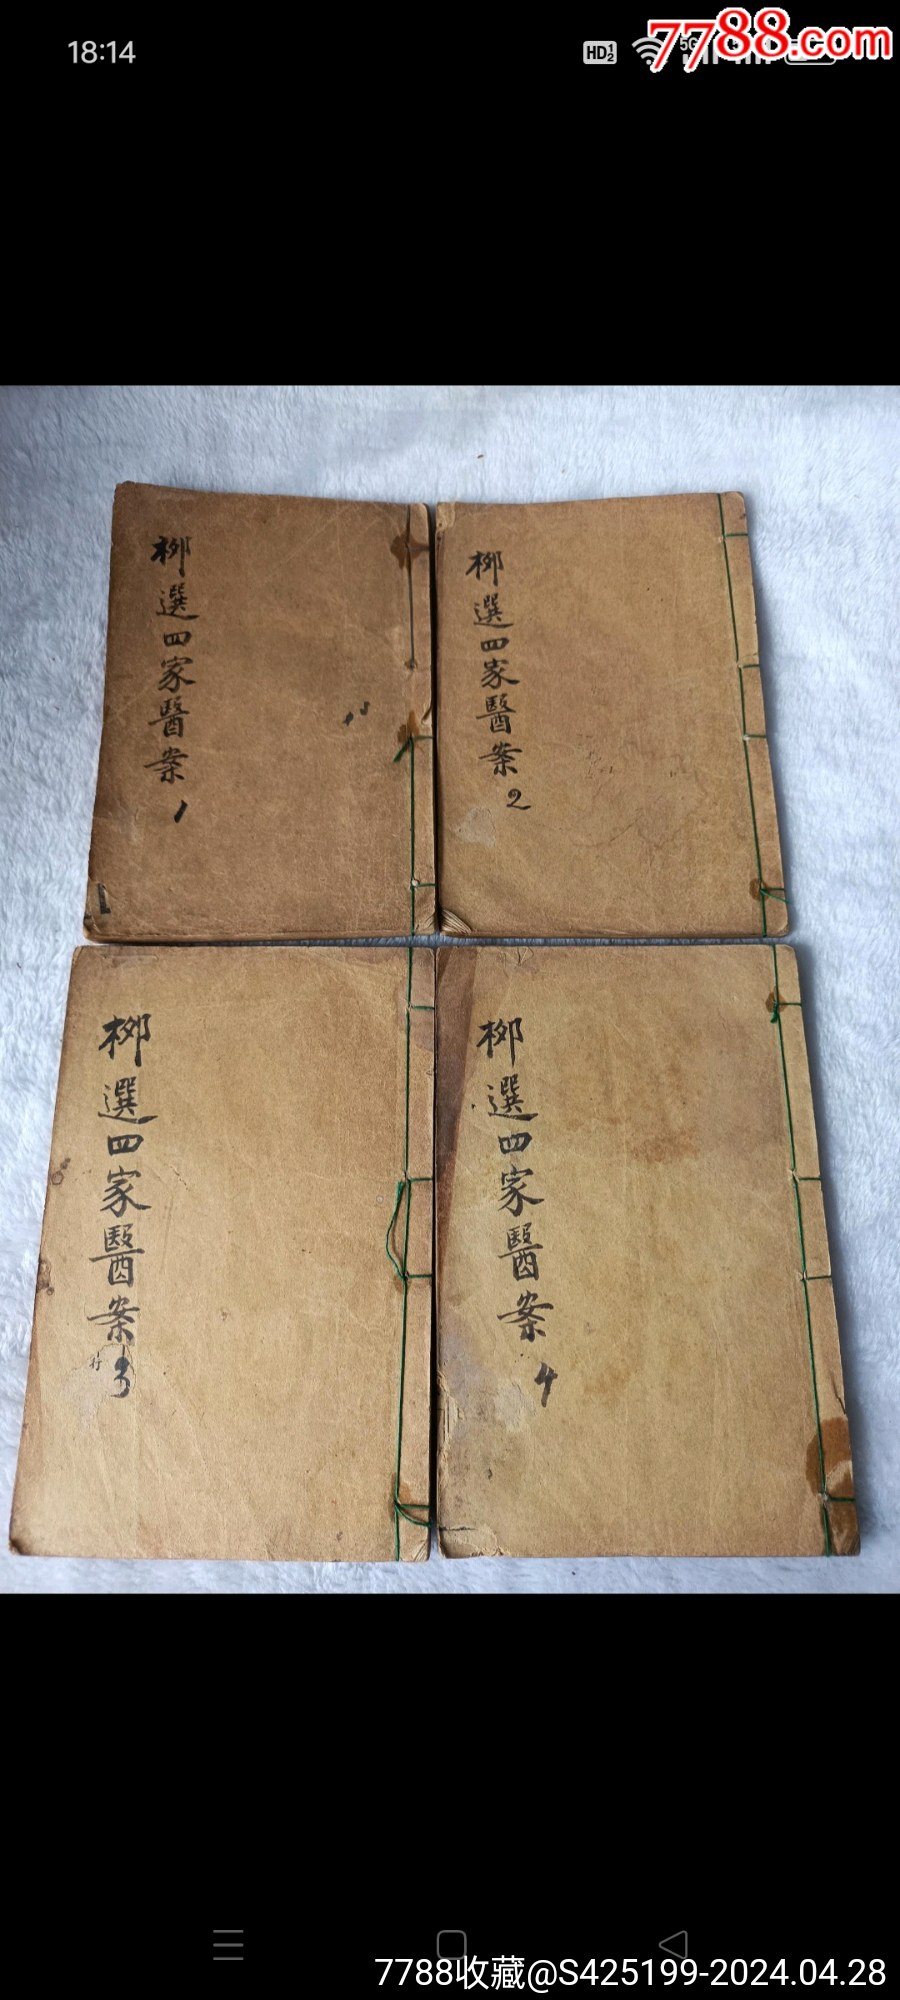 18:14
HD
7788.com
柳選四家醫案
1
柳選四家醫案
2
柳選四家醫案
3
柳選四家醫案
4
7788收藏@S425199-2024.04.28